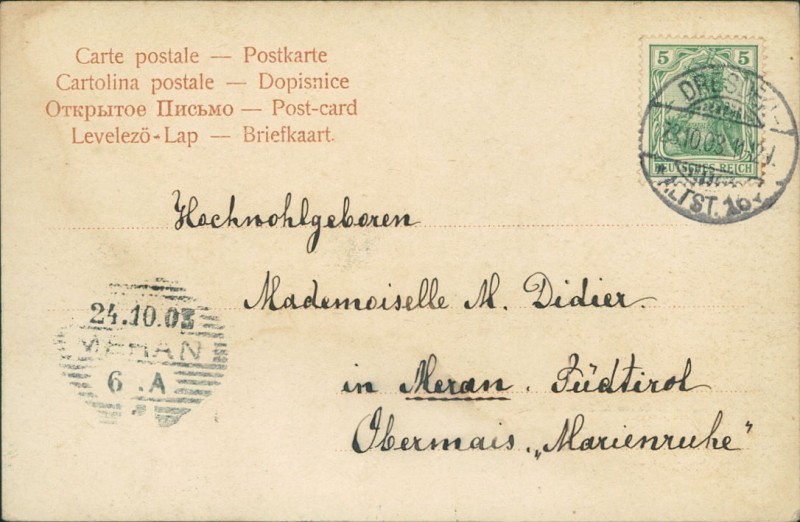 Carte postale — Postkarte
Cartolina postale — Dopisnice
Открытое Письмо — Post-card
Levelező-Lap — Briefkaart.
5 5
DEUTSCHES REICH
DRESDEN-
23.10.03.
ALTST. 16
Hochwohlgeboren
Mademoiselle M. Didier.
in Meran. Südtirol
Obermais. „Marienruhe"
24.10.03
MERAN
6 .A